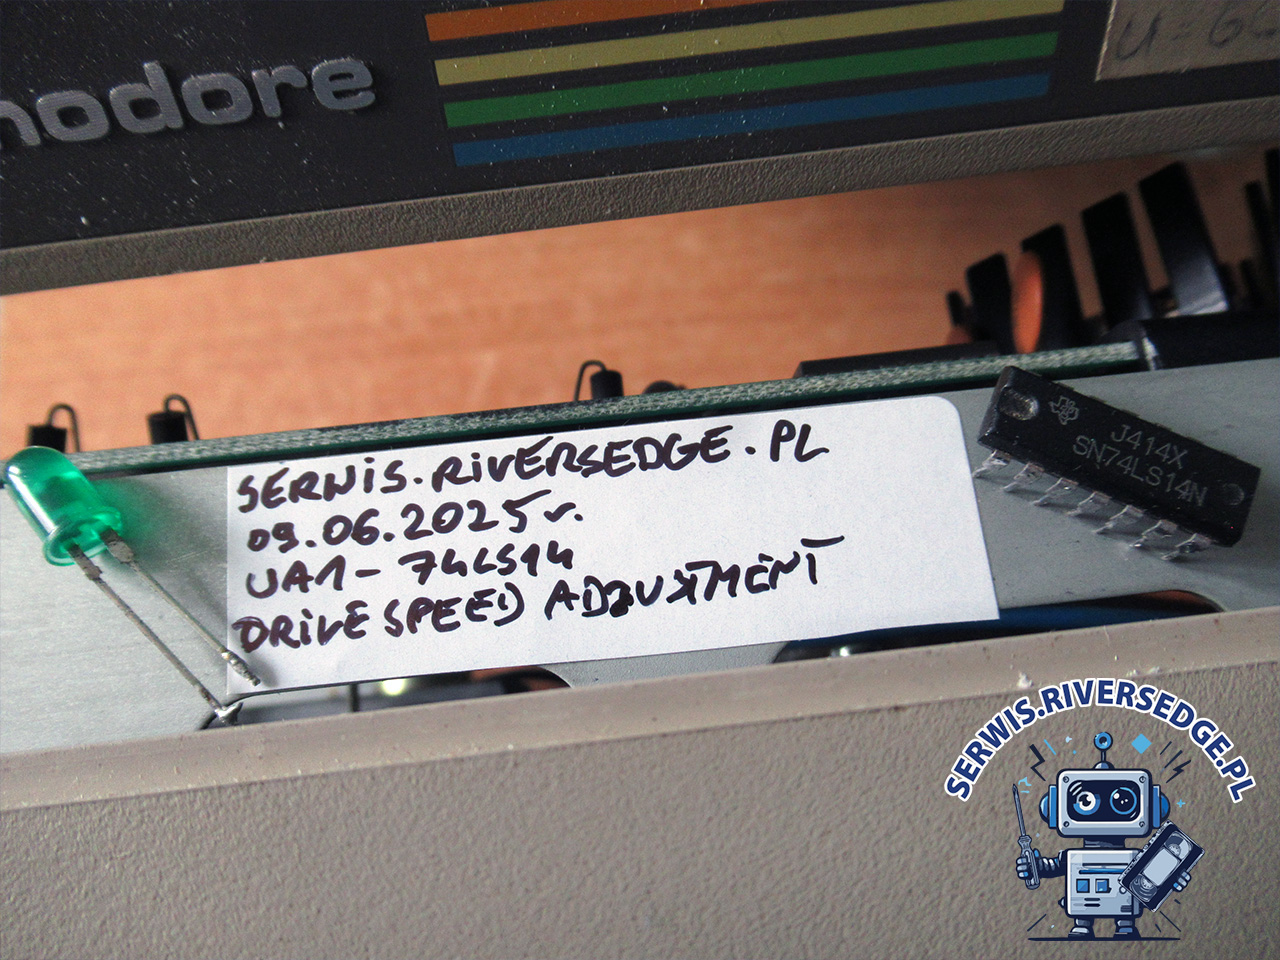 modore
U=60
SERWIS.RIVERSEDGE.PL
09.06.2025r.
UA1- 74LS14
DRIVE SPEED ADJUSTMENT
J414X
SN74LS14N
SERWIS.RIVERSEDGE.PL